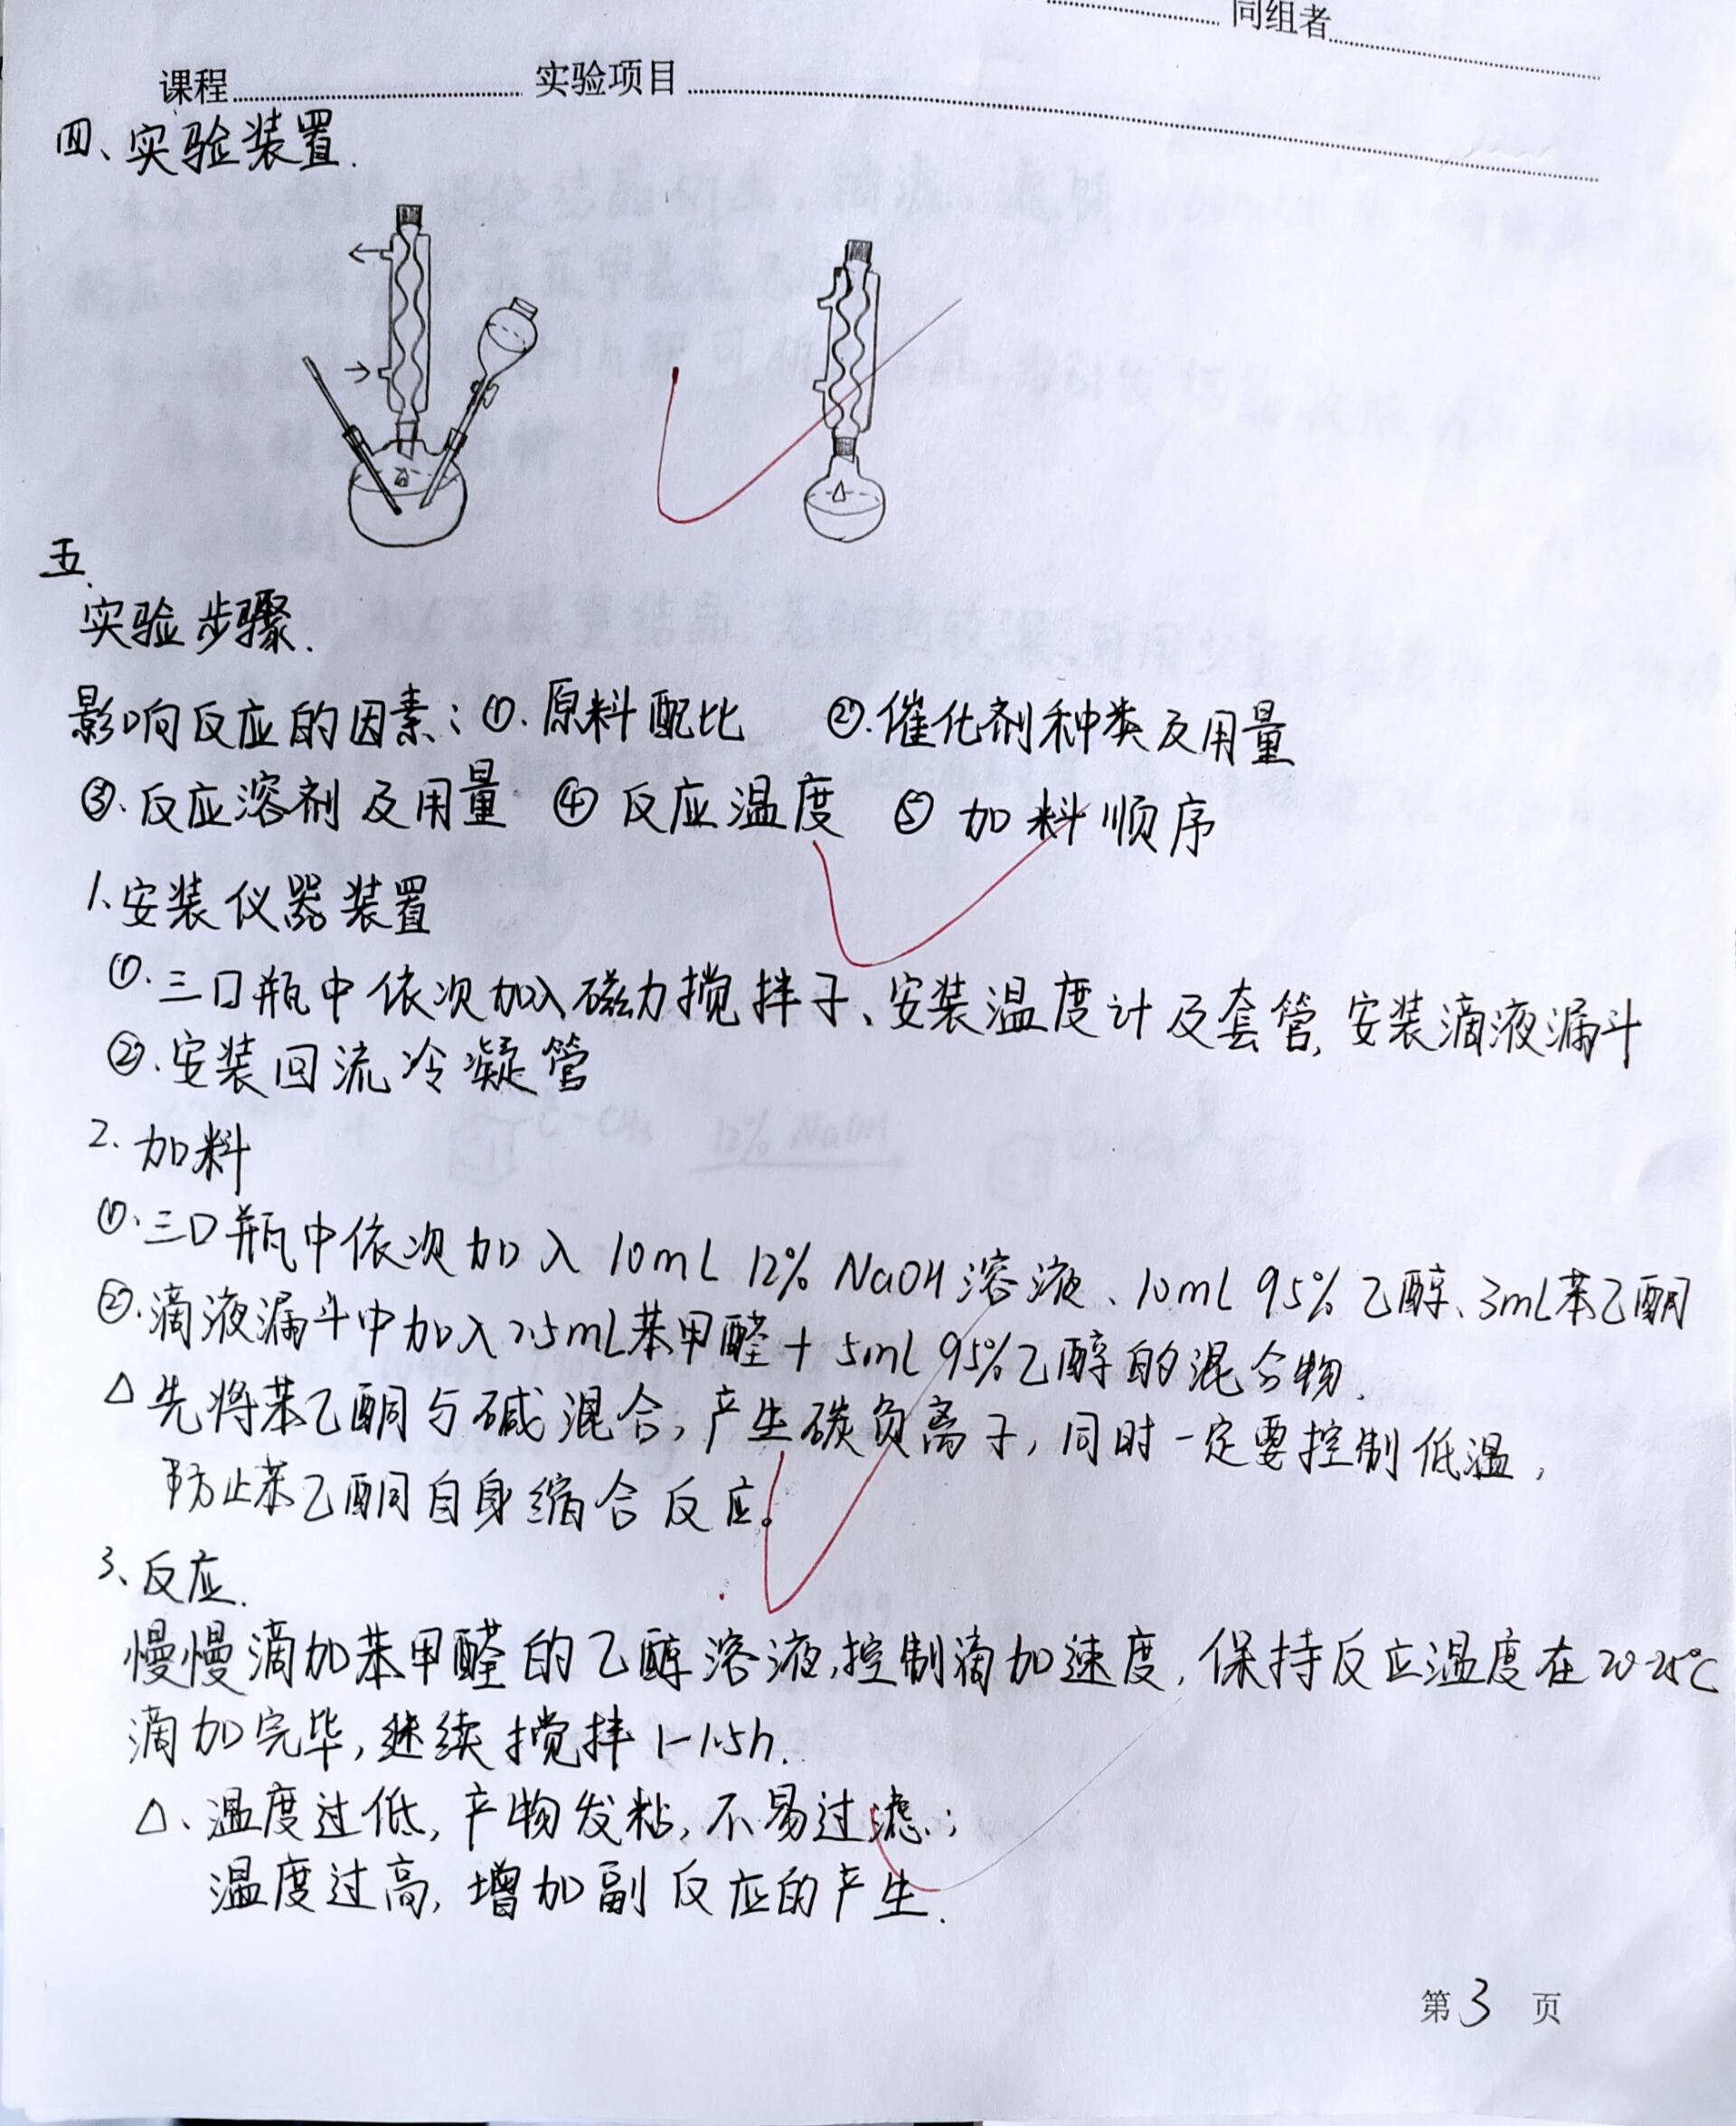 同组者
课程 实验项目
四、实验装置.
五、
实验步骤.
影响反应的因素:①.原料配比 ②.催化剂种类及用量
③.反应溶剂及用量 ④反应温度 ⑤加料顺序
1.安装仪器装置
①.三口瓶中依次加入磁力搅拌子、安装温度计及套管,安装滴液漏斗
②.安装回流冷凝管
2.加料
①.三口瓶中依次加入10mL 12% NaOH溶液、10mL 95%乙醇、3mL苯乙酮
②.滴液漏斗中加入2.5mL苯甲醛+5mL 95%乙醇的混合物.
△先将苯乙酮与碱混合,产生碳负离子,同时一定要控制低温,
防止苯乙酮自身缩合反应。
3、反应.
慢慢滴加苯甲醛的乙醇溶液,控制滴加速度,保持反应温度在20-25℃
滴加完毕,继续搅拌1-1.5h.
△、温度过低,产物发粘,不易过滤;
温度过高,增加副反应的产生.
第3页